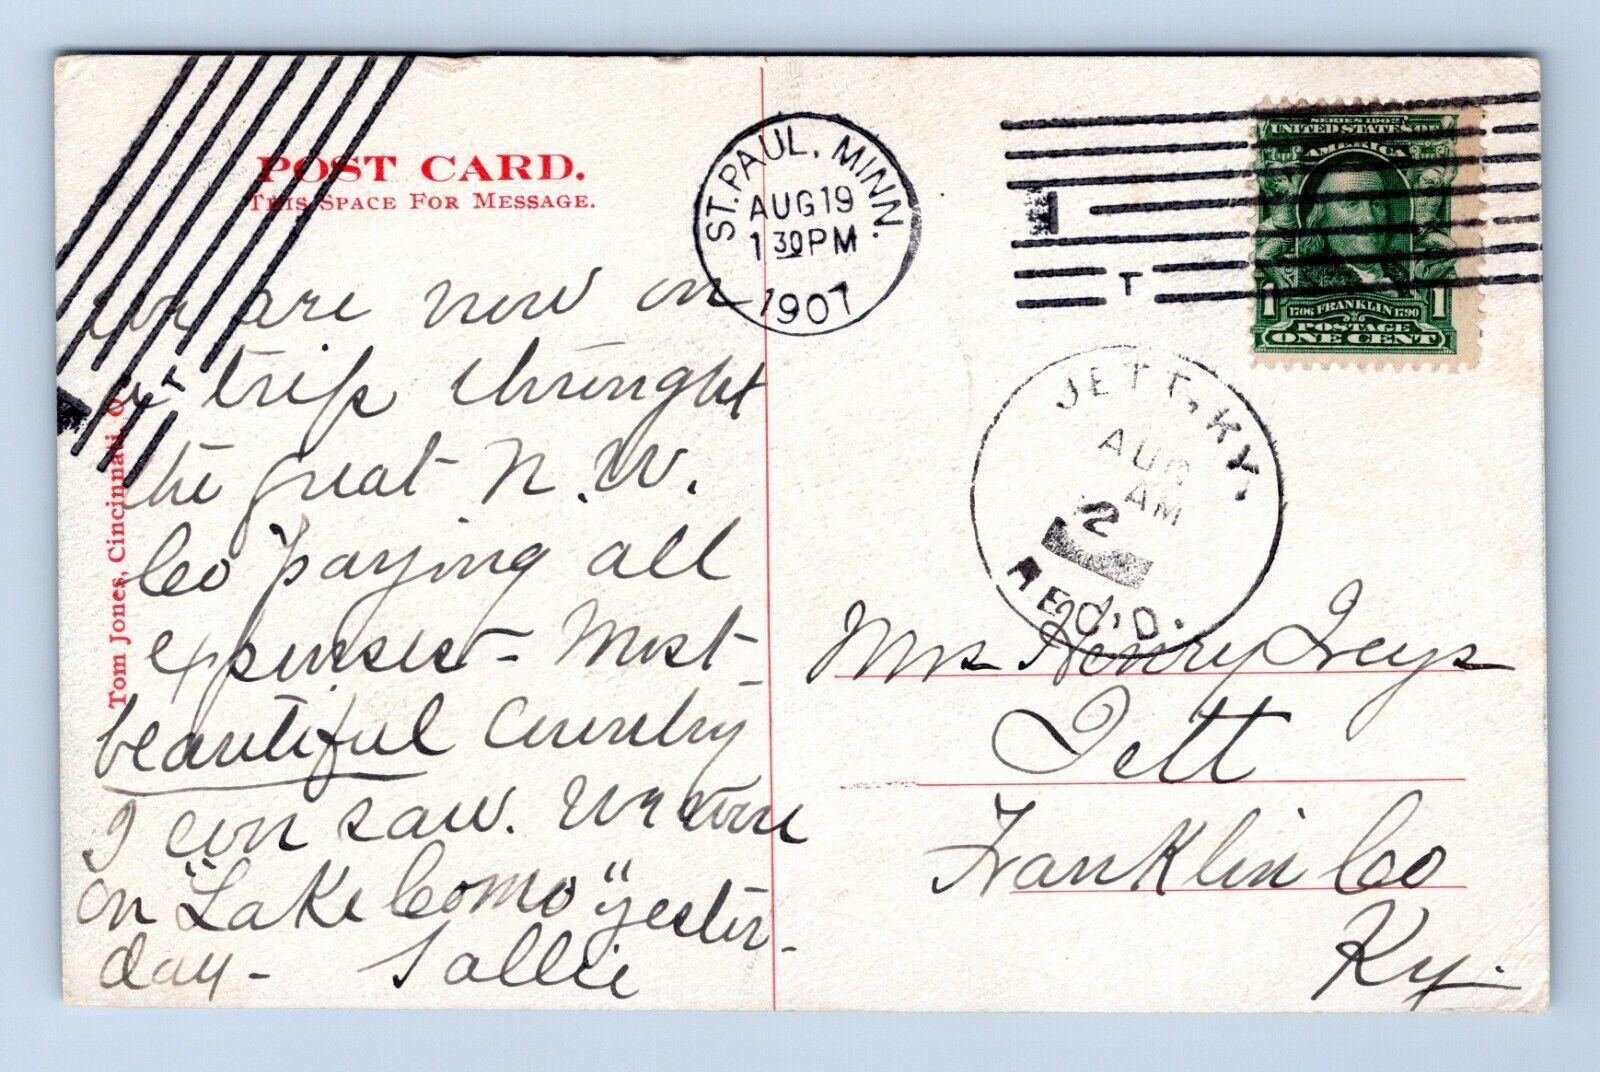 POST CARD.
THIS SPACE FOR MESSAGE.
are now on
a trip throught
the great N.W.
Co paying all
expenses – Most
beautiful Country
I ever saw. We were
on "Lake Como" yester-
day – Sallie
Tom Jones, Cincinnati, O.
ST. PAUL, MINN.
AUG 19
1 30 PM
1907
T
T
SERIES 1902
UNITED STATES OF
AMERICA
1 1706 FRANKLIN 1790 1
POSTAGE
ONE CENT
JETT, KY.
AUG
AM
2
REC'D.
Mrs Henry
Jett
Franklin Co
Ky.